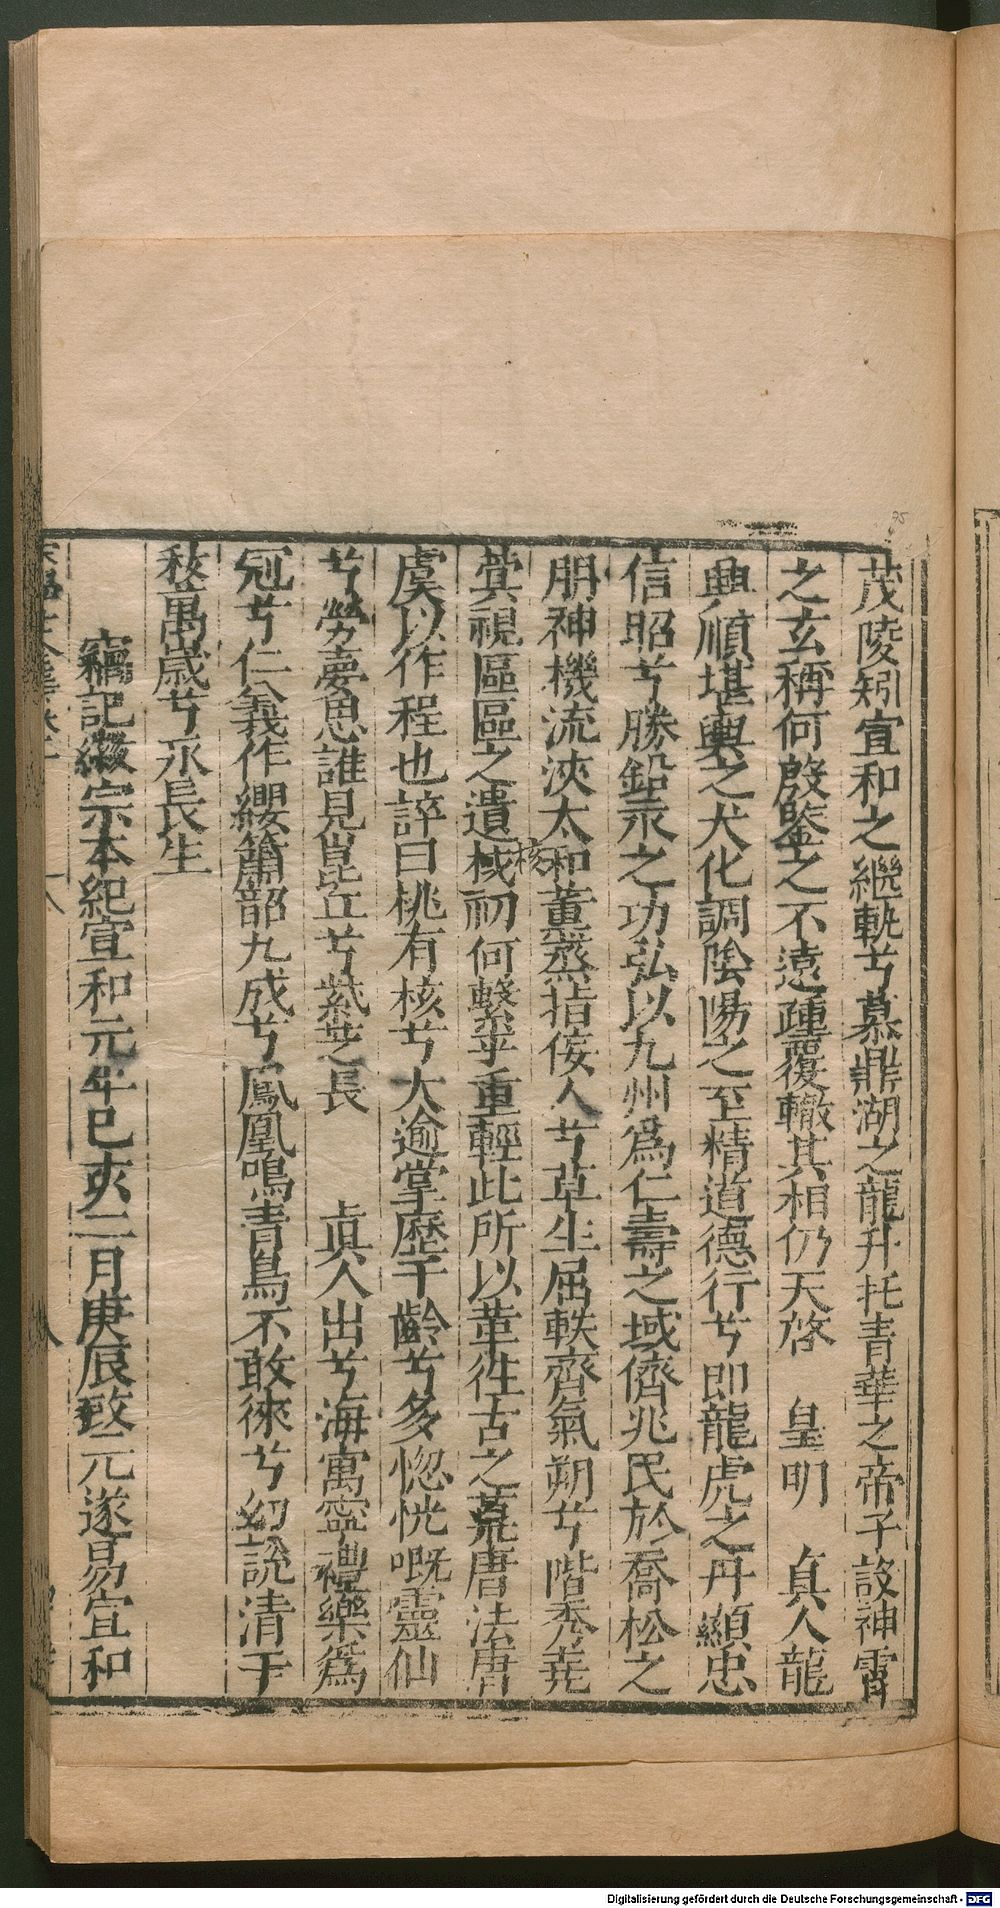 茂陵矧宣和之繼軌兮慕鼎湖之龍升托青華之帝子設神霄
之玄稱何殷鑒之不遠踵覆轍其相仍天啓　皇明　真人龍
興順堪輿之大化調陰陽之至精道德行兮即龍虎之丹顯忠
信昭兮勝鉛汞之功弘以九州爲仁壽之域儕兆民於喬松之
朋神機流浹太和薰蒸指佞人兮草生屈軼齊氣朔兮階秀堯
蓂視區區之遺核初何繫乎重輕此所以革徃古之荒唐法唐
核
虞以作程也誶曰桃有核兮大逾掌歷千齡兮多惚恍嘅靈仙
兮勞夢思誰見崑丘兮紫芝長　真人出兮海寓寧禮樂爲
冠兮仁義作纓簫韶九成兮鳳凰鳴青鳥不敢徠兮幻說清于
萬歲兮永長生
竊記徽宗本紀宣和元年巳亥二月庚辰改元遂易宣和
Digitalisierung gefördert durch die Deutsche Forschungsgemeinschaft - DFG